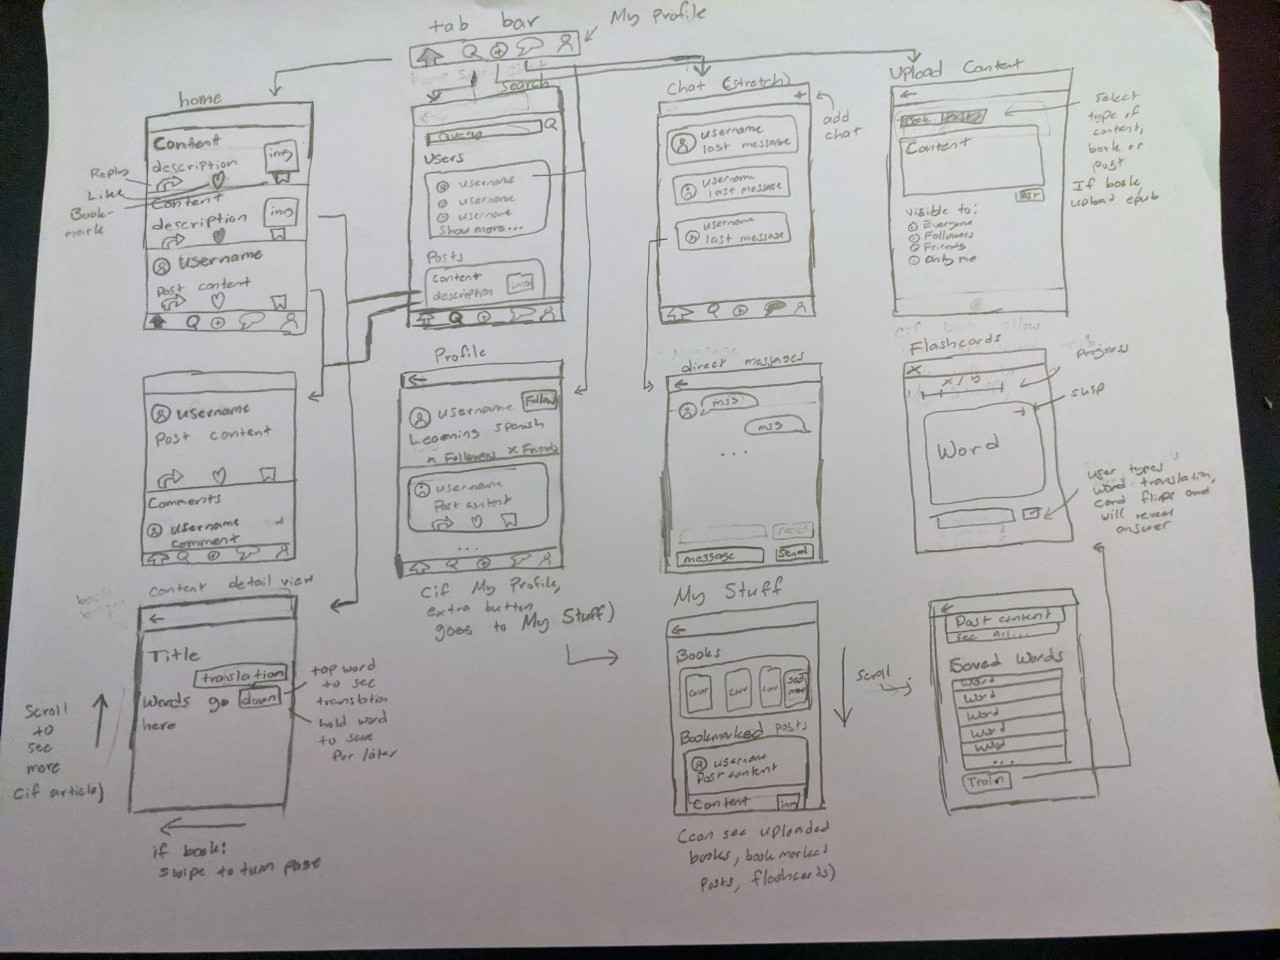 tab bar
My Profile
home
Content
description
img
Reply
Like
Bookmark
Content
description
img
username
Post content
search
Users
username
username
username
Show more...
Posts
Content
description
img
Chat (stretch)
+
add
chat
username
last message
username
last message
username
last message
Upload Content
Book Post
Content
Post
visible to:
Everyone
Followers
Friends
Only me
Select
type of
content,
book or
post
If book
upload epub
username
Post content
Comments
username
comment
Profile
username
Follow
Learning spanish
x Followers x Friends
username
Post content
...
(if My Profile,
extra button
goes to My Stuff)
direct messages
msg
msg
...
message
Send
Flashcards
X
x / n
Progress
skip
Word
user types
word translation,
card flips and
will reveal
answer
content detail view
Title
translation
Words go down
here
tap word
to see
translation
hold word
to save
for later
Scroll
to
see
more
(if article)
if book:
swipe to turn page
My Stuff
Books
cover
cover
cov
see
more
Bookmarked posts
username
Post content
Content
img
(can see uploaded
books, bookmarked
posts, flashcards)
scroll
Post content
see all...
Saved Words
word
Word
Word
Word
Word
...
Train